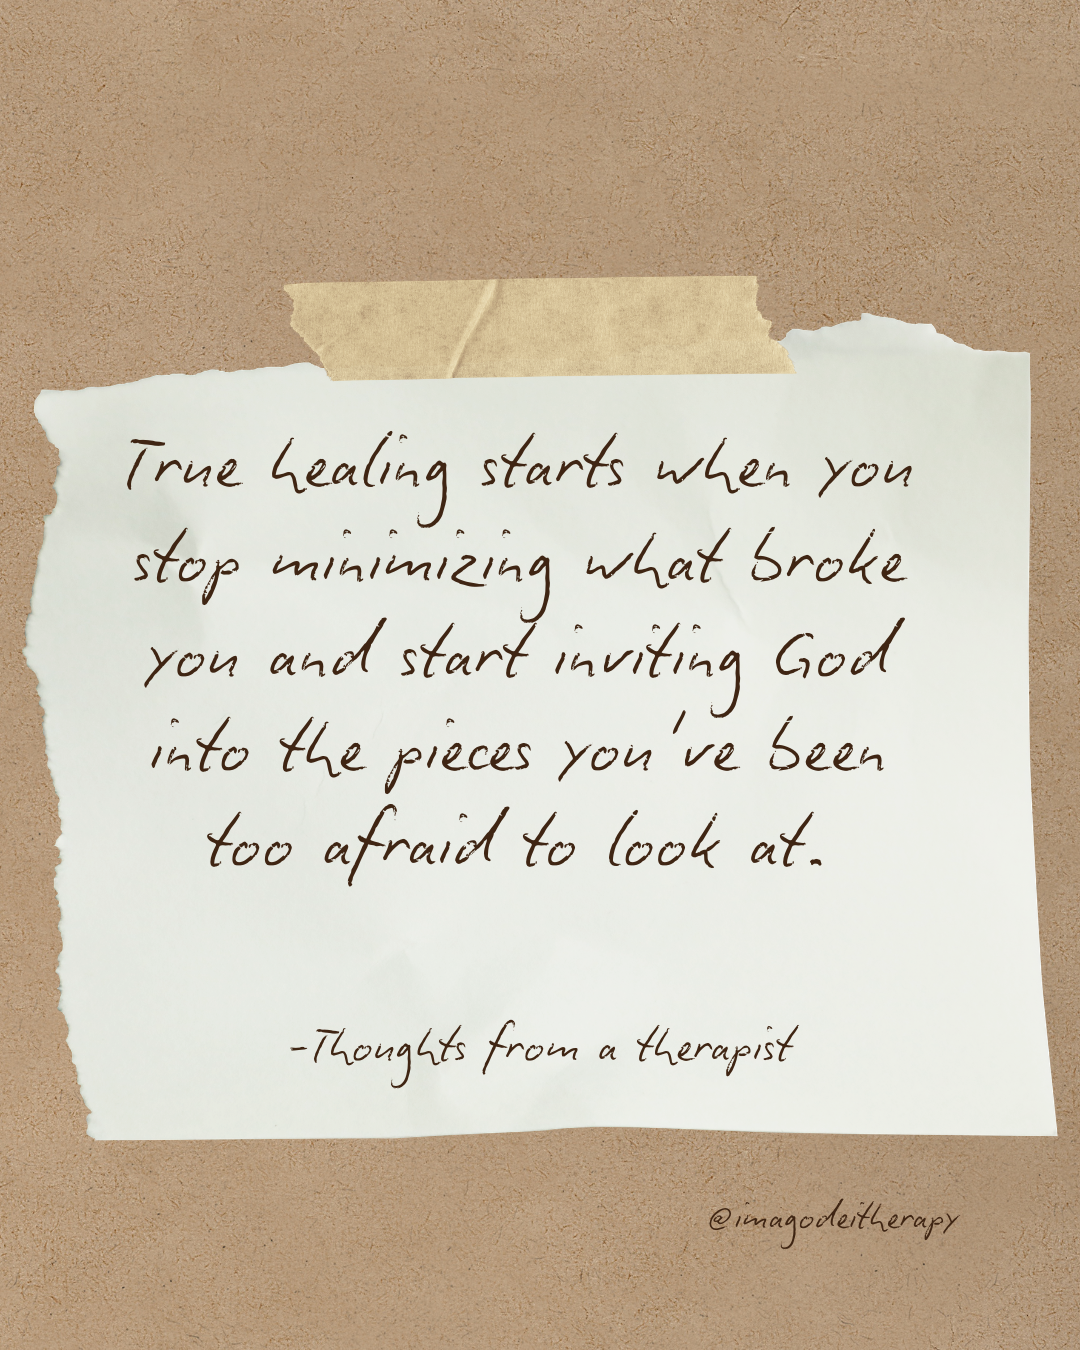 True healing starts when you
stop minimizing what broke
you and start inviting God
into the pieces you've been
too afraid to look at.
-Thoughts from a therapist
@imagodeitherapy